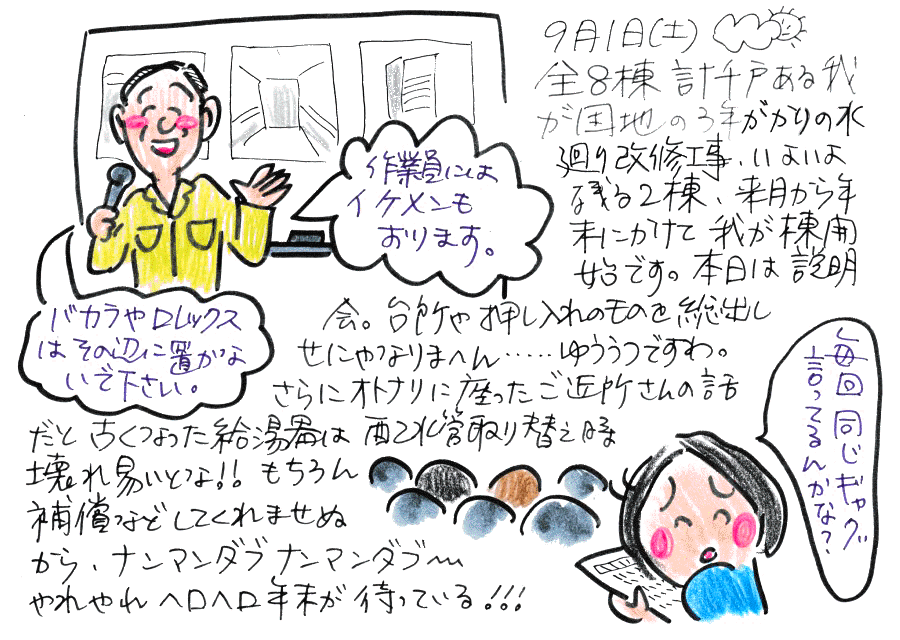 9月1日(土)
全8棟 計千戸ある我
が団地の3年がかりの水
廻り改修工事、いよいよ
残る2棟、来月から年
末にかけて 我が棟開
始です。本日は 説明
会。台所や押し入れのものを総出し
せにゃなりまへん……ゆううつですわ。
さらにオトナリに座ったご近所さんの話
だと 古くなった給湯器は 配水管取り替え時
壊れ易いとな!! もちろん
補償などしてくれませぬ
から、ナンマンダブナンマンダブ〜
やれやれ ヘロヘロ年末が待っている!!!
作業員には
イケメンも
おります。
バカラやロレックス
はその辺に置かな
いで下さい。
毎回同じギャグ
言ってるんかな?